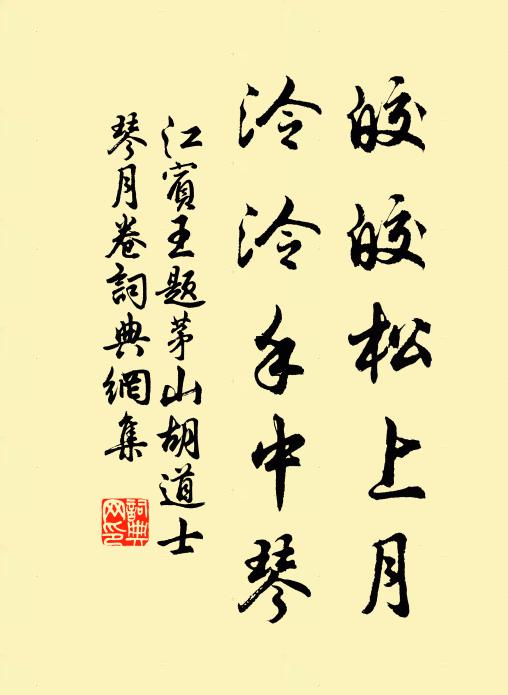 皎皎松上月
泠泠手中琴
江賓王題茅山胡道士
琴月卷詞典網集
詞典
网印